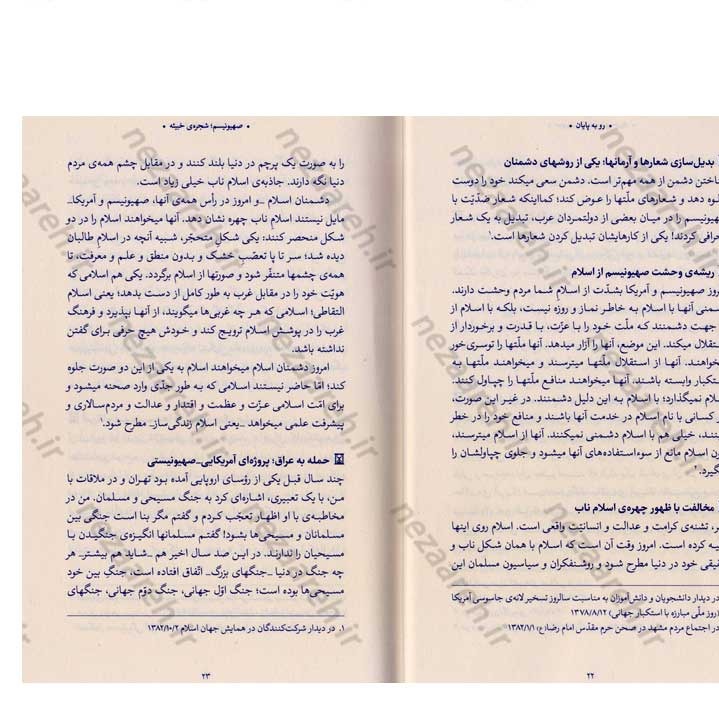 • رو به پایان •
بدیل‌سازی شعارها و آرمانها؛ یکی از روشهای دشمنان
ناختن دشمن از همه مهم‌تر است. دشمن سعی میکند خود را دوست
لوه دهد و شعارهای ملّتها را عوض کند؛ کمااینکه شعار ضدّیّت با
هیونیسم را در میان بعضی از دولتمردان عرب، تبدیل به یک شعار
حرافی کردند! یکی از کارهایشان تبدیل کردن شعارها است.¹
ریشه‌ی وحشت صهیونیسم از اسلام
روز صهیونیسم و آمریکا بشدّت از اسلام شما مردم وحشت دارند.
شمنی آنها با اسلام به خاطر نماز و روزه نیست، بلکه با اسلام از
جهت دشمنند که ملّت خود را با عزّت، با قدرت و برخوردار از
ستقلال میکند. این موضع، آنها را آزار میدهد. آنها ملّتها را توسری‌خور
خواهند. آنها از استقلال ملّتها میترسند و میخواهند ملّتها به
ستکبار وابسته باشند. آنها میخواهند منافع ملّتها را چپاول کنند.
سلام نمیگذارد؛ با اسلام به این دلیل دشمنند. در غیر این صورت،
ر کسانی با نام اسلام در خدمت آنها باشند و منافع خود را در خطر
ینند، خیلی هم با اسلام دشمنی نمیکنند. آنها از اسلام میترسند،
ون اسلام مانع از سوءاستفاده‌های آنها میشود و جلوی چپاولشان را
گیرد.²
مخالفت با ظهور چهره‌ی اسلام ناب
ر، تشنه‌ی کرامت و عدالت و انسانیّت واقعی است. اسلام روی اینها
یه کرده است. امروز وقت آن است که اسلام با همان شکل ناب و
قیقی خود در دنیا مطرح شود و روشنفکران و سیاسیون مسلمان این
در دیدار دانشجویان و دانش‌آموزان به مناسبت سالروز تسخیر لانه‌ی جاسوسی آمریکا
روز ملّی مبارزه با استکبار جهانی) ۱۳۷۸/۸/۱۲
در اجتماع مردم مشهد در صحن حرم مقدّس امام رضا(ع) ۱۳۸۲/۱/۱
۲۲
• صهیونیسم؛ شجره‌ی خبیثه •
را به صورت یک پرچم در دنیا بلند کنند و در مقابل چشم همه‌ی مردم
دنیا نگه دارند. جاذبه‌ی اسلام ناب خیلی زیاد است.
دشمنان اسلام _و امروز در رأس همه‌ی آنها، صهیونیسم و آمریکا_
مایل نیستند اسلام ناب چهره نشان دهد. آنها میخواهند اسلام را در دو
شکل منحصر کنند: یکی شکلِ متحجّر، شبیه آنچه در اسلامِ طالبان
دیده شد؛ سر تا پا تعصّب خشک و بدون منطق و علم و معرفت، تا
همه‌ی چشمها متنفّر شود و صورتها از اسلام برگردد. یکی هم اسلامی که
هویّت خود را در مقابل غرب به طور کامل از دست بدهد؛ یعنی اسلام
التقاطی؛ اسلامی که هر چه غربی‌ها میگویند، از آنها بپذیرد و فرهنگ
غرب را در پوشش اسلام ترویج کند و خودش هیچ حرفی برای گفتن
نداشته باشد.
امروز دشمنان اسلام میخواهند اسلام به یکی از این دو صورت جلوه
کند؛ امّا حاضر نیستند اسلامی که به طور جدّی وارد صحنه میشود و
برای امّت اسلامی عزّت و عظمت و اقتدار و عدالت و مردم‌سالاری و
پیشرفت علمی میخواهد _یعنی اسلام زندگی‌ساز_ مطرح شود.¹
حمله به عراق؛ پروژه‌ای آمریکایی_صهیونیستی
چند سال قبل یکی از رؤسای اروپایی آمده بود تهران و در ملاقات با
من، با یک تعبیری، اشاره‌ای کرد به جنگ مسیحی و مسلمان. من در
مخاطبه‌ی با او اظهار تعجّب کردم و گفتم مگر بنا است جنگی بین
مسلمانان و مسیحی‌ها بشود! گفتم مسلمانها انگیزه‌ی جنگیدن با
مسیحیان را ندارند. در این صد سال اخیر هم _شاید هم بیشتر_ هر
چه جنگ در دنیا _جنگهای بزرگ_ اتّفاق افتاده است، جنگِ بین خود
مسیحی‌ها بوده است؛ جنگ اوّل جهانی، جنگ دوّم جهانی، جنگهای
۱. در دیدار شرکت‌کنندگان در همایش جهان اسلام ۱۳۸۲/۱۰/۲
۲۳
nezaareh.ir